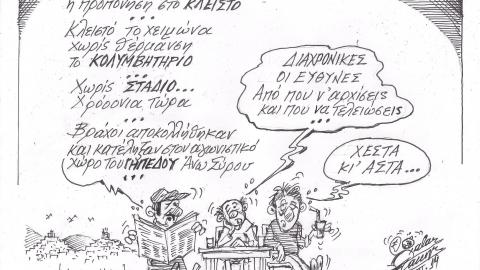 η προπόνηση στο ΚΛΕΙΣΤΟ
...
Κλειστό το χειμώνα
χωρίς θέρμανση
το ΚΟΛΥΜΒΗΤΗΡΙΟ
...
Χωρίς ΣΤΑΔΙΟ...
Χρόοονια τώρα
...
Βράχοι αποκολλήθηκαν
και κατέληξαν στον αγωνιστικό
χώρο του ΓΗΠΕΔΟΥ Άνω Σύρου
...
ΔΙΑΧΡΟΝΙΚΕΣ
ΟΙ ΕΥΘΥΝΕΣ
Από που ν' αρχίσεις
και που να τελειώσεις
...
ΧΕΣΤΑ
ΚΙ' ΑΣΤΑ...